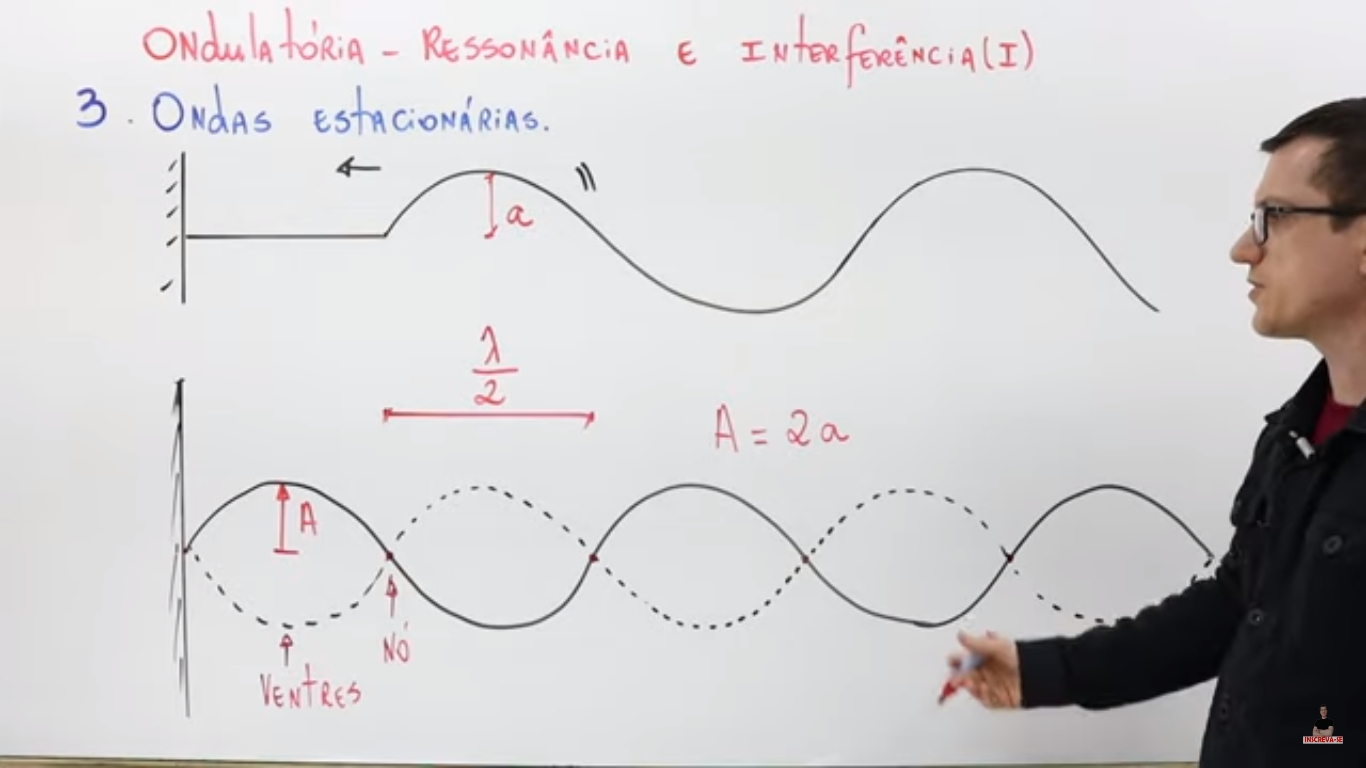 ONdulAtóRIA - RESSONÂNCIA E INtERfERÊNCIA (I)
3. ONdAS ESTACIONÁRIAS.
a
λ/2
A = 2a
A
NÓ
VENtRES
INSCREVA-SE